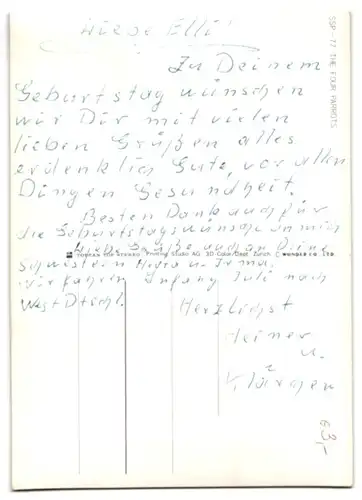 Liebe Elli!
Zu Deinem
Geburtstag wünschen
wir Dir mit vielen
lieben Grüßen alles
erdenklich Gute, vor allen
Dingen Gesundheit.
Besten Dank auch für
die Geburtstagswünsche an mich
Liebe Grüße auch an Deine
TOPPAN TOP STEREO Froehling Studio AG 3D-Color/Dept. Zürich © WONDER CO. LTD.
Schwestern u. Irma.
wir fahren Anfang Juli nach
West Dtschl.
Herzlichst
Heiner
u.
Klärchen
SSP-77 THE FOUR PARROTS
63,-